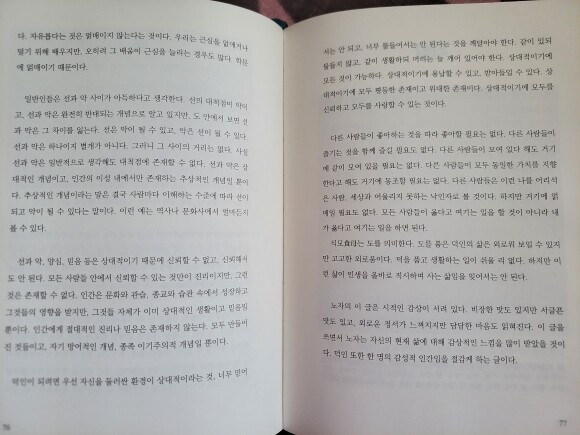 다. 자유롭다는 것은 얽매이지 않는다는 것이다. 우리는 근심을 없애거나
떨기 위해 배우지만, 오히려 그 배움이 근심을 늘리는 경우도 많다. 학문
에 얽매이기 때문이다.
일반인들은 선과 악 사이가 아득하다고 생각한다. 선의 대척점이 악이
고, 선과 악은 완전히 반대되는 개념으로 알고 있지만, 도 안에서 보면 선
과 악은 그 차이를 잃는다. 선은 악이 될 수 있고, 악은 선이 될 수 있다.
선과 악은 하나이지 별개가 아니다. 그러니 그 사이의 거리는 없다. 사실
선과 악은 일반적으로 생각해도 대척점에 존재할 수 없다. 선과 악은 상
대적인 개념이고, 인간의 이성 내에서만 존재하는 추상적인 개념일 뿐이
다. 추상적인 개념이라는 말은 결국 사람마다 이해하는 수준에 따라 선이
되고 악이 될 수 있다는 말이다. 이런 예는 역사나 문화사에서 얼마든지
볼 수 있다.
선과 악, 양심, 믿음 등은 상대적이기 때문에 신뢰할 수 없고, 신뢰해서
도 안 된다. 모든 사람들 안에서 신뢰할 수 있는 것만이 진리이지만, 그런
것은 존재할 수 없다. 인간은 문화와 관습, 종교와 습관 속에서 성장하고
그것들의 영향을 받지만, 그것들 자체가 이미 상대적인 생활이고 믿음일
뿐이다. 인간에게 절대적인 진리나 믿음은 존재하지 않는다. 모두 만들어
진 것들이고, 자기 방어적인 개념, 종족 이기주의적 개념일 뿐이다.
덕인이 되려면 우선 자신을 둘러싼 환경이 상대적이라는 것, 너무 믿어
76
서는 안 되고, 너무 물들어서는 안 된다는 것을 깨달아야 한다. 같이 있되
물들지 않고, 같이 생활하되 머리는 늘 깨어 있어야 한다. 상대적이기에
모든 것이 가능하다. 상대적이기에 용납할 수 있고, 받아들일 수 있다. 상
대적이기에 모두 평등한 존재이고 위대한 존재이다. 상대적이기에 모두를
신뢰하고 모두를 사랑할 수 있는 것이다.
다른 사람들이 좋아하는 것을 따라 좋아할 필요는 없다. 다른 사람들이
즐기는 것을 함께 즐길 필요도 없다. 다른 사람들이 모여 있다 해도 거기
에 같이 모여 있을 필요는 없다. 다른 사람들이 모두 동일한 가치를 지향
한다고 해도 거기에 동조할 필요는 없다. 다른 사람들은 이런 나를 어리석
은 사람, 세상과 어울리지 못하는 낙인자로 볼 것이다. 하지만 거기에 얽
매일 필요도 없다. 모든 사람들이 옳다고 여기는 일을 할 것이 아니라 내
가 옳다고 여기는 일을 하면 된다.
식모食母는 도를 의미한다. 도를 품은 덕인의 삶은 외로워 보일 수 있지
만 고고한 외로움이다. 덕을 품고 생활하는 일이 쉬울 리 없다. 하지만 이
런 삶이 인생을 올바로 직시하며 사는 삶임을 잊어서는 안 된다.
노자의 이 글은 시적인 감상이 서려 있다. 비장한 맛도 있지만 서글픈
맛도 있고, 외로운 정서가 느껴지지만 담담한 마음도 읽혀진다. 이 글을
쓰면서 노자는 자신의 현재 삶에 대해 감상적인 느낌을 많이 받았을 것이
다. 덕인 또한 한 명의 감성적 인간임을 절감케 하는 글이다.
77